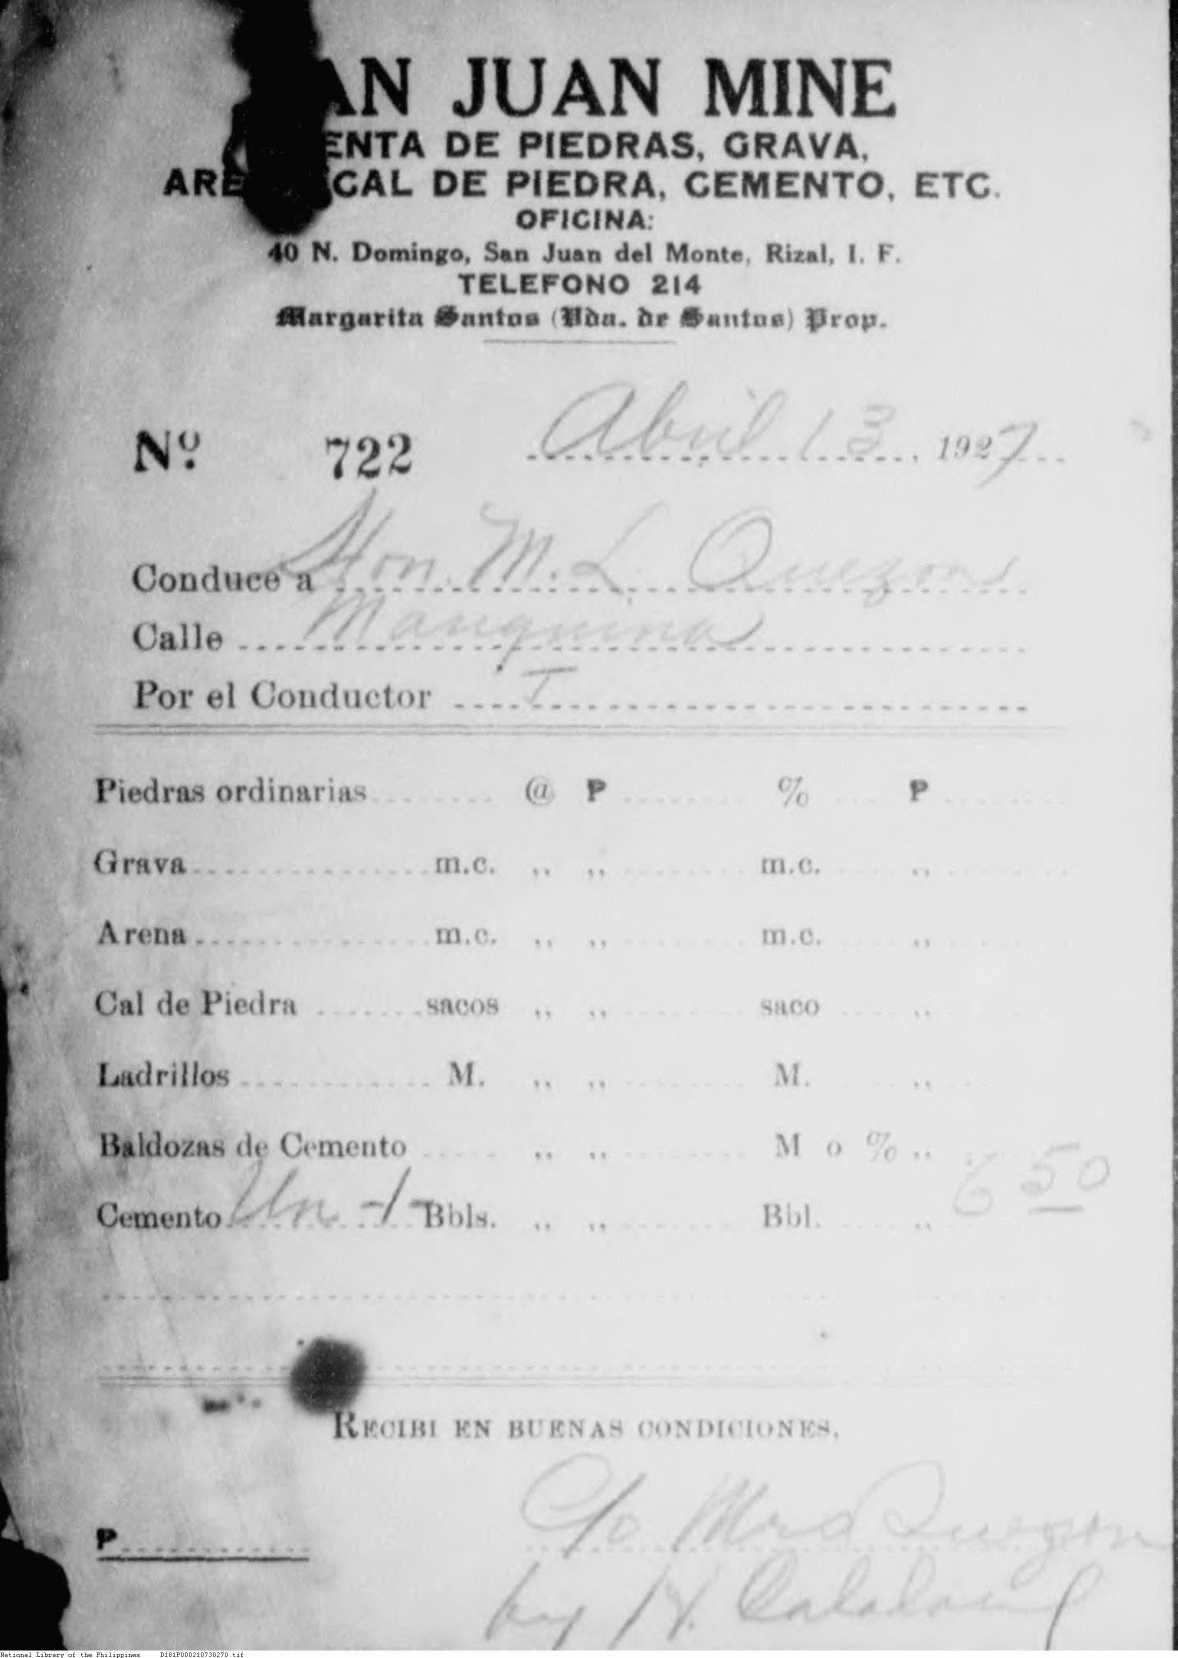 AN JUAN MINE
ENTA DE PIEDRAS, GRAVA,
ARE CAL DE PIEDRA, CEMENTO, ETC.
OFICINA:
40 N. Domingo, San Juan del Monte, Rizal, I. F.
TELEFONO 214
Margarita Santos (Vda. de Santos) Prop.
Nº. 722 Abril 13, 1927
Conduce a Hon. M. L. Quezon
Calle Mariquina
Por el Conductor I
Piedras ordinarias @ ₱ % ₱
Grava m.c. ,, ,, m.c. ,,
Arena m.c. ,, ,, m.c. ,,
Cal de Piedra sacos ,, ,, saco ,,
Ladrillos M. ,, ,, M. ,,
Baldozas de Cemento ,, ,, M o % ,,
Cemento Un -1- Bbls. ,, ,, Bbl. ,, 6 50
RECIBI EN BUENAS CONDICIONES,
₱ C/o Mrs Quezon
by H. Catalang
National Library of the Philippines D181P000210730270.tif